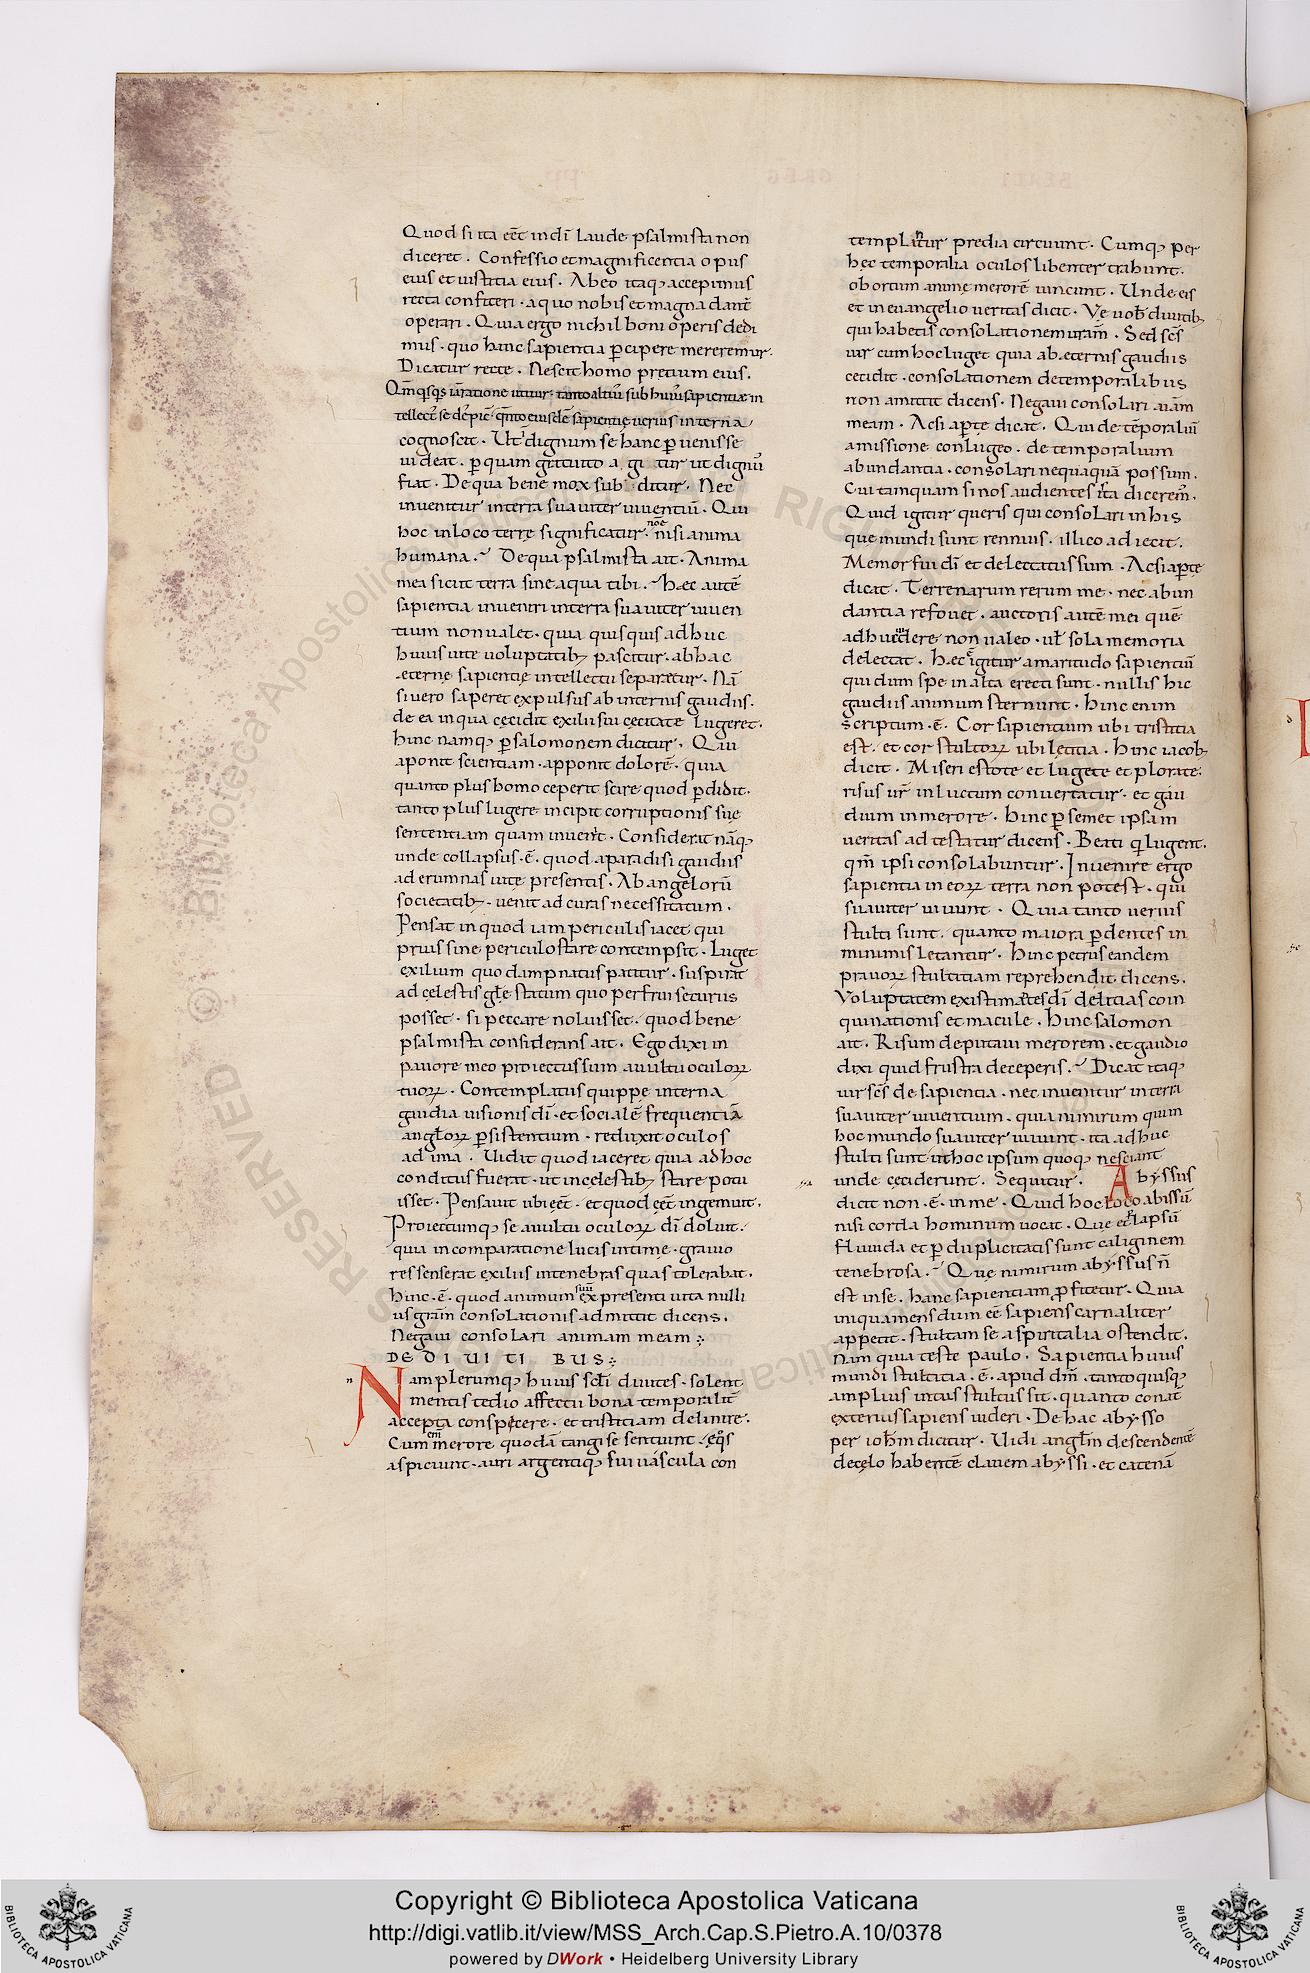 Quod si ita eēt in dī laude psalmista non
diceret . Confessio et magnificentia opus
eius et iustitia eius . Ab eo itaq; accepimus
recta confiteri . a quo nobis et magna dant̄
operari . Quia ergo nichil boni operis dedi
mus . quo hanc sapientia p̄cipere mereremur .
Dicatur recte . Nescit homo pretium eius .
cognoscit . Ut dignum se hanc p̄uenisse
uideat . p̄ quam gratuito agitur ut dignū
fiat . De qua bene mox subditur . Nec
inuenitur in terra suauiter uiuentiū . Qui
hoc in loco terrę significatur . noē nisi anima
humana . De qua psalmista ait . Anima
mea sicut terra sine aqua tibi . Hæc autē
sapientia inueniri in terra suauiter uiuen
tium non ualet . quia quisquis adhuc
huius uite uoluptatib; pascitur . ab hac
æternę sapientię intellectu separatur . Nā
si uero saperet expulsus ab internis gaudiis .
de ea in qua cecidit exilii sui cecitate lugeret .
hinc namq; p̄ salomonem dicitur . Qui
aponit scientiam . apponit dolorē . quia
quanto plus homo ceperit scire quod p̄didit .
tanto plus lugere incipit corruptionis suę
sententiam quam inuenit . Considerat nāq;
unde collapsus . ē . quod a paradisi gaudiis
ad erumnas uitę presentis . Ab angelorū
societatib; . uenit ad curas necessitatum .
Pensat in quod iam periculis iacet qui
prius sine periculo stare contempsit . Luget
exilium quo dampnatus patitur . suspirat
ad celestis gl̄e statum quo perfrui securus
posset . si peccare noluisset . quod bene
psalmista considerans ait . Ego dixi in
pauore meo proiectus sum a uultu oculoꝝ
tuoꝝ . Contemplatus quippe interna
gaudia uisionis dī . et socialē frequentiā
angl̄oꝝ p̄sistentium . reduxit oculos
ad ima . Uidit quod iaceret quia ad hoc
conditus fuerat . ut in celestib; stare potu
isset . Pensauit ubi eēt . et quod eēt ingemuit .
Proiectumq; se a uultu oculoꝝ dī doluit .
quia in comparatione lucis intimę . grauio
res senserat exilii sui tenebras quas tolerabat .
hinc . ē . quod animum suum ex presenti uita nulli
us gr̄am consolationis admittit dicens .
Negaui consolari animam meam
DE DIUITIBUS
Nam plerumq; huius sclī diuites . solent
mentis tedio affecti bona temporalit̄
accepta conspicere . et tristitiam delinire .
Cum enī merore quodā tangi se sentiunt . eqōs
aspiciunt . auri argentiq; sui uascula con
templantur predia circuunt . Cumq; per
hęc temporalia oculos libenter trahunt .
obortum animę merorē uincunt . Unde eis
et in euangelio ueritas dicit . Vę uob̄ diuitib;
qui habetis consolationem ur̄am . Sed scs̄
uir cum hoc luget quia ab æternis gaudiis
cecidit . consolationem de temporalibus
non amittit dicens . Negaui consolari aīam
meam . Ac si ap̄te dicat . Qui de tēporaliū
amissione non lugeo . de temporalium
abundantia . consolari nequaquā possum .
Cui tamquam si nos audientes ita dicerem̄ .
Quid igitur queris qui consolari in his
que mundi sunt rennuis . illico adiecit .
Memor fui dī et delectatus sum . Ac si ap̄te
dicat . Terrenarum rerum me . nec abun
dantia refouet . auctoris autē mei quē
adhuc uidere non ualeo . uel sola memoria
delectat . hæc igitur amaritudo sapientiū
qui dum spe in alta erecti sunt . nullis hic
gaudiis animum sternunt . hinc enim
scriptum . ē . Cor sapientium ubi tristitia
est . et cor stultoꝝ ubi letitia . hinc iacob;
dicit . Miseri estote et lugete et plorate .
risus ur̄ in luctum conuertatur . et gau
dium in merore . hinc p̄ semet ipsam
ueritas ad testatur dicens . Beati q̄ lugent .
qm̄ ipsi consolabuntur . Inuenire ergo
sapientia in eoꝝ terra non potest . qui
suauiter uiuunt . Quia tanto uerius
stulti sunt . quanto maiora p̄dentes in
minimis letantur . hinc petrus eandem
prauoꝝ stultitiam reprehendit dicens .
Voluptatem existimantes diei delitias coin
quinationis et macule . hinc salomon
ait . Risum deputaui merorem . et gaudio
dixi quid frustra deceperis . Dicat itaq;
uir scs̄ de sapientia . nec inuenitur in terra
suauiter uiuentium . quia nimirum qui in
hoc mundo suauiter uiuunt . ita adhuc
stulti sunt ut hoc ipsum quoq; nesciant
unde ceciderunt . Sequitur . Abyssus
dicit non . ē . in me . Quid hoc loco abissū
nisi corda hominum uocat . Que et lapsū
fluuida et p̄ duplicitatis sunt caliginem
tenebrosa . Quę nimirum abyssus n̄
est in se . hanc sapientiam p̄fitetur . Quia
iniqua mens dum eē sapiens carnaliter
appetit . stultam se a spiritalia ostendit .
Nam quia teste paulo . Sapientia huius
mundi stultitia . ē . apud dm̄ . tanto quisq;
amplius intus stultus fit . quanto conat̄
exterius sapiens uideri . De hac abysso
per ioh̄m dicitur . Uidi angl̄m descendentē
de cęlo habentē clauem abyssi . et catenā
Copyright © Biblioteca Apostolica Vaticana
http://digi.vatlib.it/view/MSS_Arch.Cap.S.Pietro.A.10/0378
powered by DWork • Heidelberg University Library